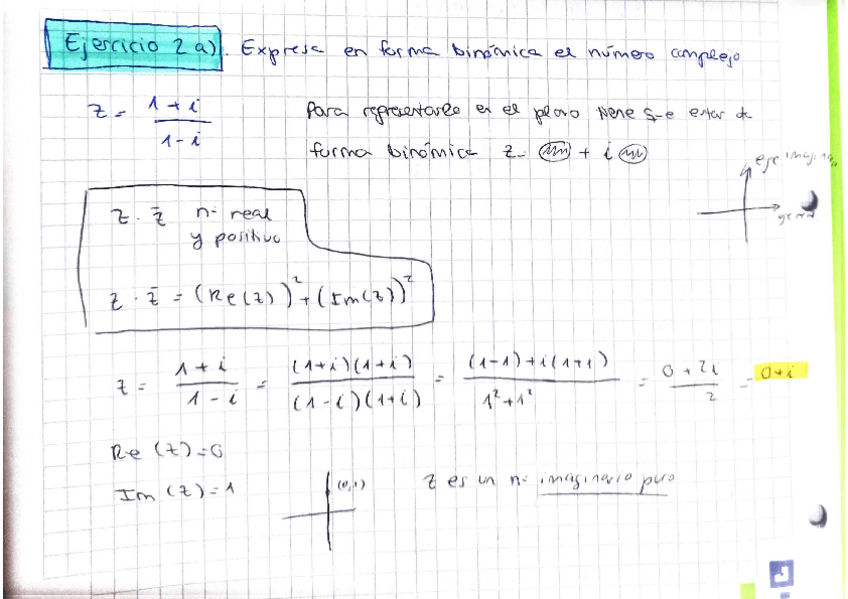 Ejercicio 2 a). Expresa en forma binómica el número complejo
z = 1 + i / 1 - i
Para representarlo en el plano tiene que estar de
forma binómica z = + i
eje imaginario
z · z̄ nº real
y positivo
z · z̄ = (Re(z))² + (Im(z))²
z = 1 + i / 1 - i = (1+i)(1+i) / (1-i)(1+i) = (1-1)+i(1+1) / 1²+1² = 0 + 2i / 2 = 0+i
Re (z) = 0
Im (z) = 1
(0,1)
z es un nº imaginario puro